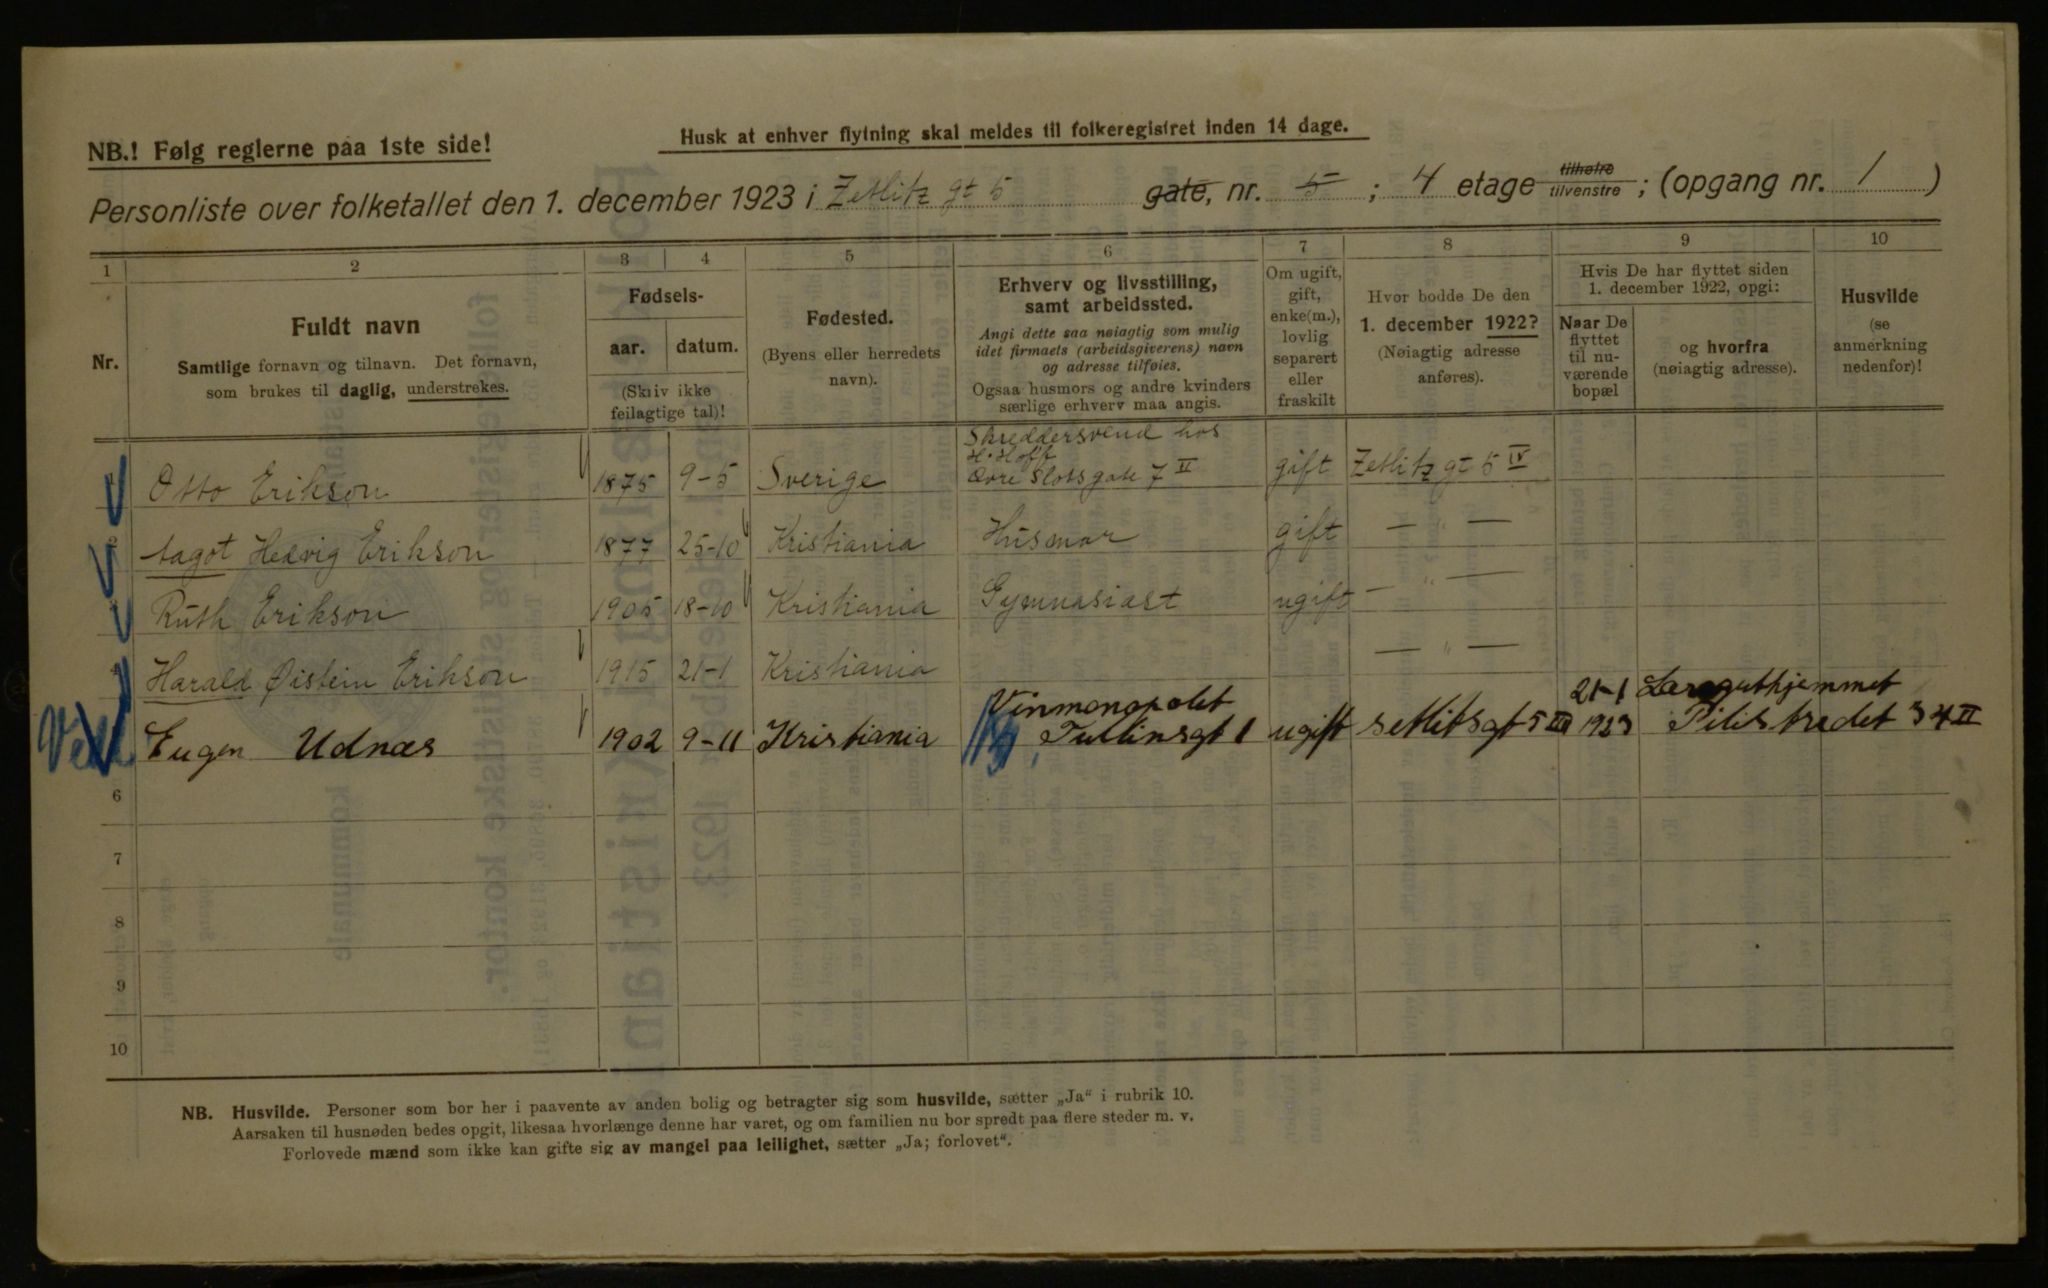 NB.! Følg reglerne paa 1ste side!
Husk at enhver flytning skal meldes til folkeregistret inden 14 dage.
Personliste over folketallet den 1. december 1923 i Zetlitz gt 5 gate, nr. 5 ; 4 etage tilhøire tilvenstre ; (opgang nr. 1 )
1 2 3 4 5 6 7 8 9 10
Nr.
Fuldt navn
Samtlige fornavn og tilnavn. Det fornavn,
som brukes til daglig, understrekes.
Fødsels-
aar. datum.
(Skriv ikke
feilagtige tal)!
Fødested.
(Byens eller herredets
navn).
Erhverv og livsstilling,
samt arbeidssted.
Angi dette saa nøiagtig som mulig
idet firmaets (arbeidsgiverens) navn
og adresse tilføies.
Ogsaa husmors og andre kvinders
særlige erhverv maa angis.
Om ugift,
gift,
enke(m.),
lovlig
separert
eller
fraskilt
Hvor bodde De den
1. december 1922?
(Nøiagtig adresse
anføres).
Hvis De har flyttet siden
1. december 1922, opgi:
Naar De
flyttet
til nu-
værende
bopæl
og hvorfra
(nøiagtig adresse).
Husvilde
(se
anmerkning
nedenfor)!
Skreddersvend hos
H. Hoff
1 Otto Erikson 1875 9-5 Sverige Øvre Slotsgate 7 II gift Zetlitz gt 5 IV
2 Aagot Hedvig Erikson 1877 25-10 Kristiania Husmor gift — " —
3 Ruth Erikson 1905 18-10 Kristiania Gymnasiast ugift — " —
4 Harald Øistein Erikson 1915 21-1 Kristiania — " —
Vinmonopolet 21-1
Eugen Udnæs 1902 9-11 Kristiania Tullinsgt 1 ugift setlitsgt 5 III 1923 Pilistredet 34 II
6
7
8
9
10
NB. Husvilde. Personer som bor her i paavente av anden bolig og betragter sig som husvilde, sætter „Ja“ i rubrik 10.
Aarsaken til husnøden bedes opgit, likesaa hvorlænge denne har varet, og om familien nu bor spredt paa flere steder m. v.
Forlovede mænd som ikke kan gifte sig av mangel paa leilighet, sætter „Ja; forlovet“.